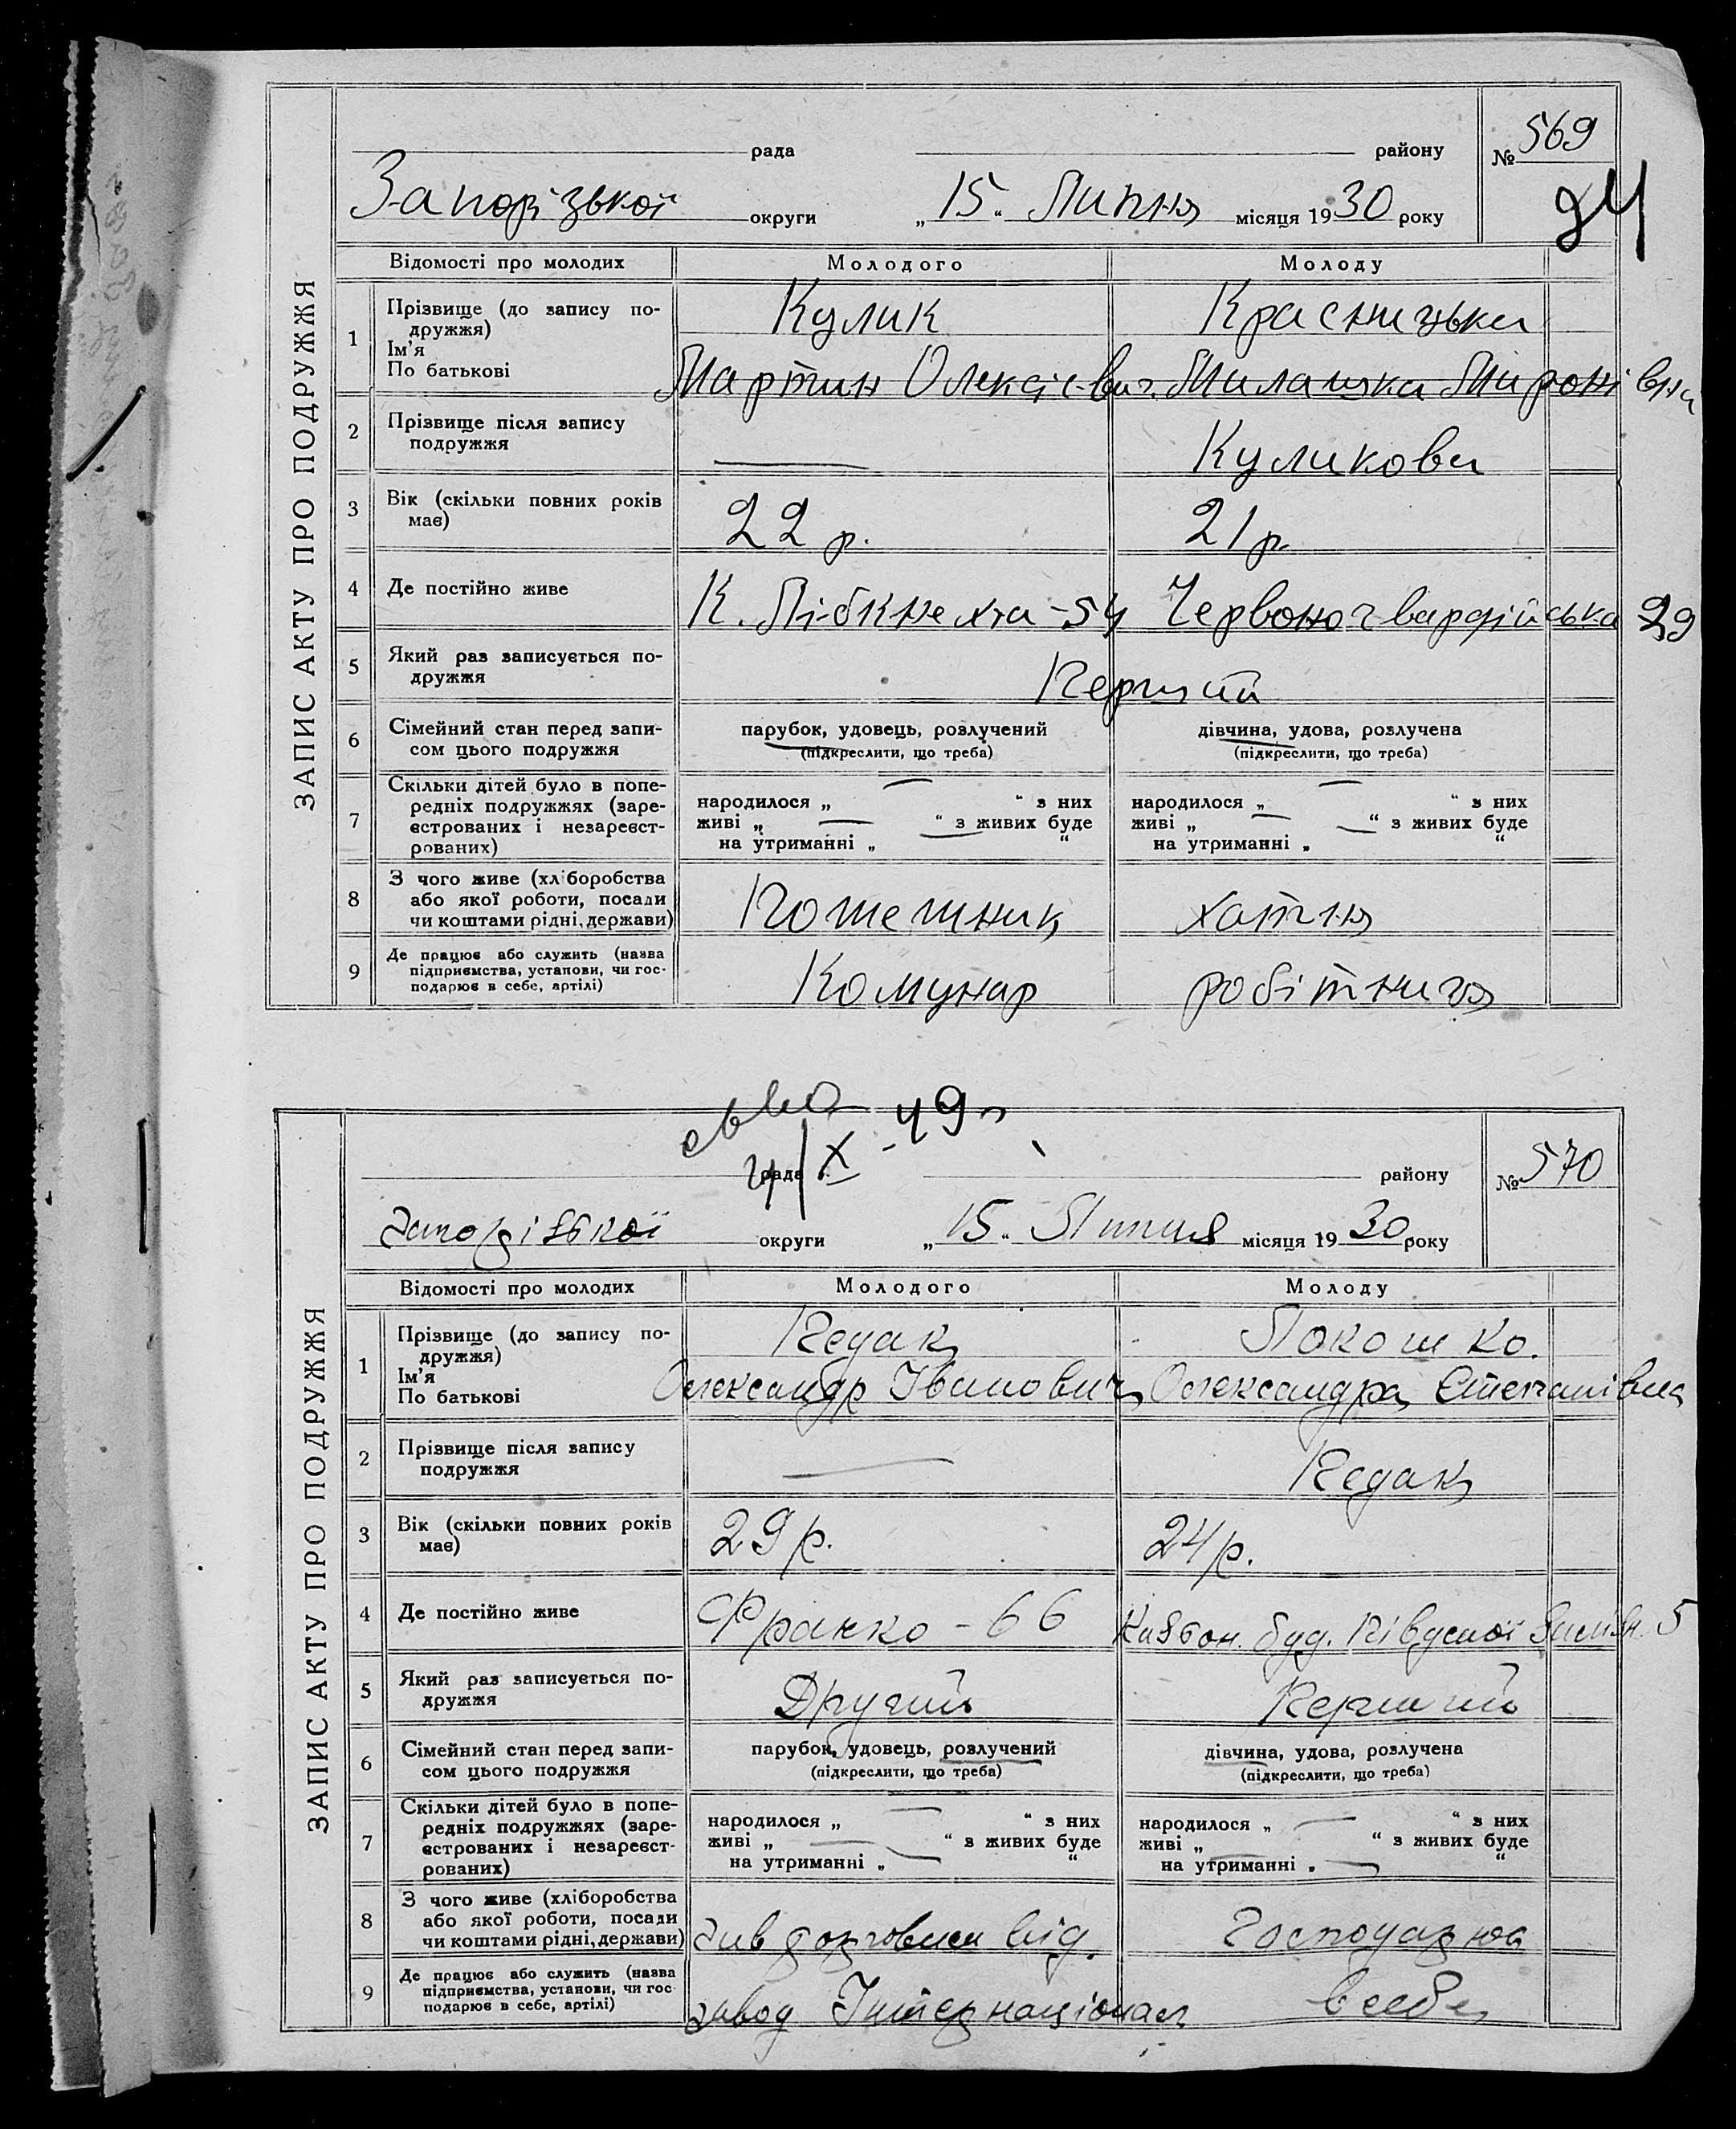 ЗАПИС АКТУ ПРО ПОДРУЖЖЯ
рада району № 569
Запорізької округи „15“ Липня місяця 1930 року
24
Відомості про молодих Молодого Молоду
1 Прізвище (до запису по-
дружжя)
Ім'я
По батькові
Кулик Красницька
Мартин Олексієвич Милашка Миронівна
2 Прізвище після запису
подружжя
— Куликова
3 Вік (скільки повних років
має)
22 р. 21 р.
4 Де постійно живе К. Лібкнехта - 54 Червоногвардійська 29
5 Який раз записується по-
дружжя
Перший
6 Сімейний стан перед запи-
сом цього подружжя
парубок, удовець, розлучений дівчина, удова, розлучена
(підкреслити, що треба) (підкреслити, що треба)
7 Скільки дітей було в попе-
редніх подружжях (заре-
єстрованих і незареєст-
рованих)
народилося „ — “ з них народилося „ — “ з них
живі „ — “ з живих буде живі „ — “ з живих буде
на утриманні „ “ на утриманні „ “
8 З чого живе (хліборобства
або якої роботи, посади
чи коштами рідні, держави)
хатня
9 Де працює або служить (назва
підприємства, установи, чи гос-
подарює в себе, артілі)
Комунар робітниця
49
4/X
ЗАПИС АКТУ ПРО ПОДРУЖЖЯ
рада району № 570
Запорізької округи „15“ Липня місяця 1930 року
Відомості про молодих Молодого Молоду
1 Прізвище (до запису по-
дружжя)
Ім'я
По батькові
Педак Локошко.
Олександр Іванович Олександра Степанівна
2 Прізвище після запису
подружжя
— Педак
3 Вік (скільки повних років
має)
29 р. 24 р.
4 Де постійно живе Франко - 66 буд. 5
5 Який раз записується по-
дружжя
Другий Перший
6 Сімейний стан перед запи-
сом цього подружжя
парубок, удовець, розлучений дівчина, удова, розлучена
(підкреслити, що треба) (підкреслити, що треба)
7 Скільки дітей було в попе-
редніх подружжях (заре-
єстрованих і незареєст-
рованих)
народилося „ — “ з них народилося „ — “ з них
живі „ — “ з живих буде живі „ — “ з живих буде
на утриманні „ — “ на утриманні „ — “
8 З чого живе (хліборобства
або якої роботи, посади
чи коштами рідні, держави)
зав від. Господарює
9 Де працює або служить (назва
підприємства, установи, чи гос-
подарює в себе, артілі)
завод Інтернаціонал в себе